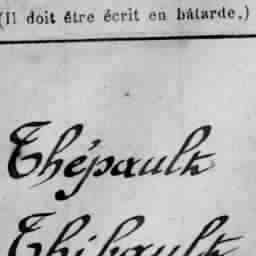 (Il doit être écrit en bâtarde.)
Thépault
Thibault